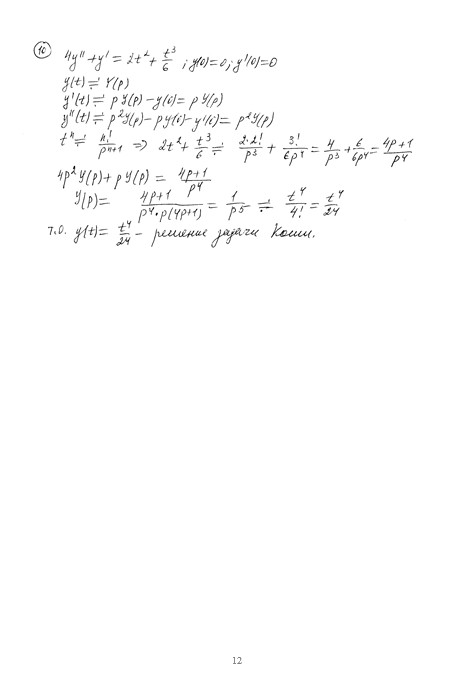 10
4y'' + y' = 2t² + t³/6 ; y(0)=0; y'(0)=0
y(t) ≓ Y(p)
y'(t) ≓ pY(p) - y(0) = pY(p)
y''(t) ≓ p²Y(p) - py(0) - y'(0) = p²Y(p)
tⁿ ≓ n!/pⁿ⁺¹ ⇒ 2t² + t³/6 ≓ 2·2!/p³ + 3!/6p⁴ = 4/p³ + 6/6p⁴ = 4p+1/p⁴
4p²Y(p) + pY(p) = 4p+1/p⁴
Y(p) = 4p+1/p⁴·p(4p+1) = 1/p⁵ ≓ t⁴/4! = t⁴/24
Т.О. y(t) = t⁴/24 - решение задачи Коши.
12